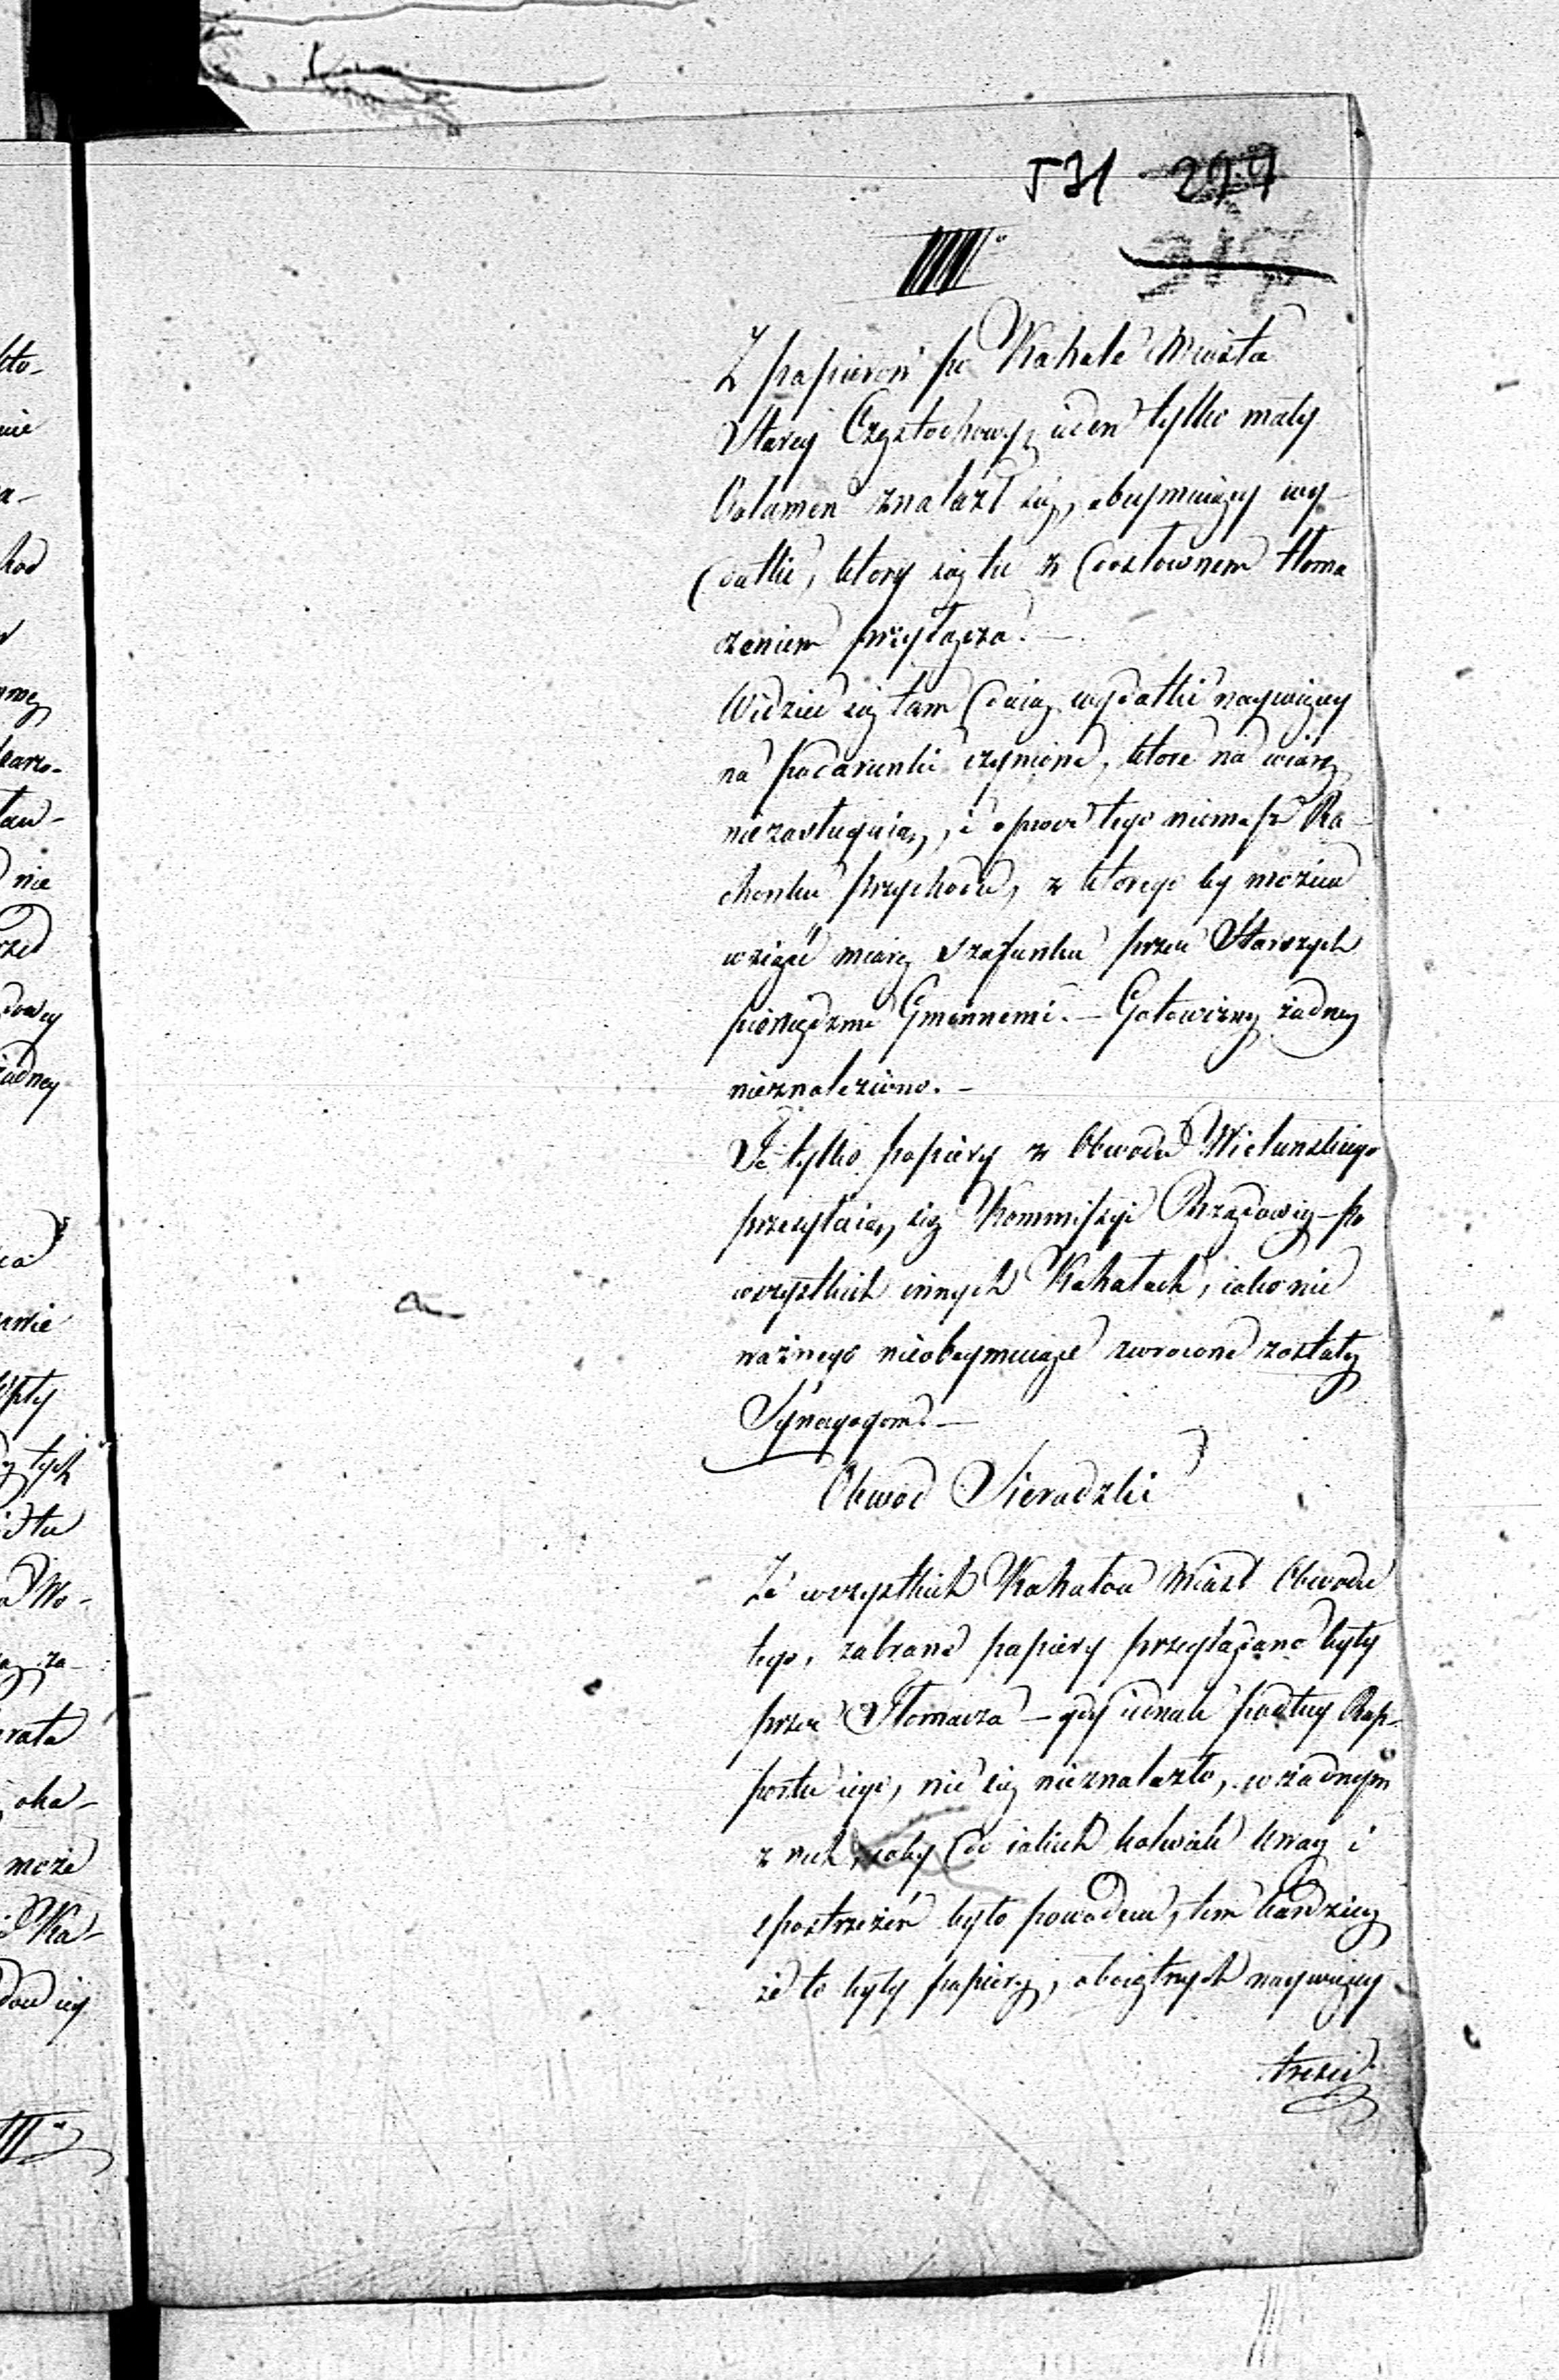 531 297
IIIII°
Z papierow po Kahale Miasta
Starey Częstochowy, ieden tylko mały
Volumen znalazł się, obeymuiący wy-
datki, ktory się tu z dosłownem tłoma
czeniem przyłącza. —
Widzieć się tam daią wydatki naywięcey
na podarunki czynione, ktore na wiarę
niezasługuią, i oprocz tego niemasz Ra-
chunku przychodu, z ktorego by można
wziąść miarę szafunku przez Starszych
pieniędzmi Gminnemi. — Gotowizny żadney
nieznaleziono. —
Te tylko papiery z Obwodu Wielunskiego
przesyłaią się Kommissyi Rządowey — po
wszystkich innych Kahałach, iako nic
ważnego nieobeymuiące zwrocone zostały
Synagogom. —
Obwod Sieradzki
Ze wszystkich Kahałow Miast Obwodu
tego, zabrane papiery przeglądane były
przez Tłomacza — gdy iednak podług Rap-
portu iego, nic się nieznalazło, w żadnym
z nich, coby do iakich kolwiek uwag i
spostrzeżeń było powodem, tem bardziey
że to były papiery, oboiętnych naywięcey
treści
kto-
nie
a-
tan-
nie
żadney
Wo-
za-
rata
oka-
może
Ka-